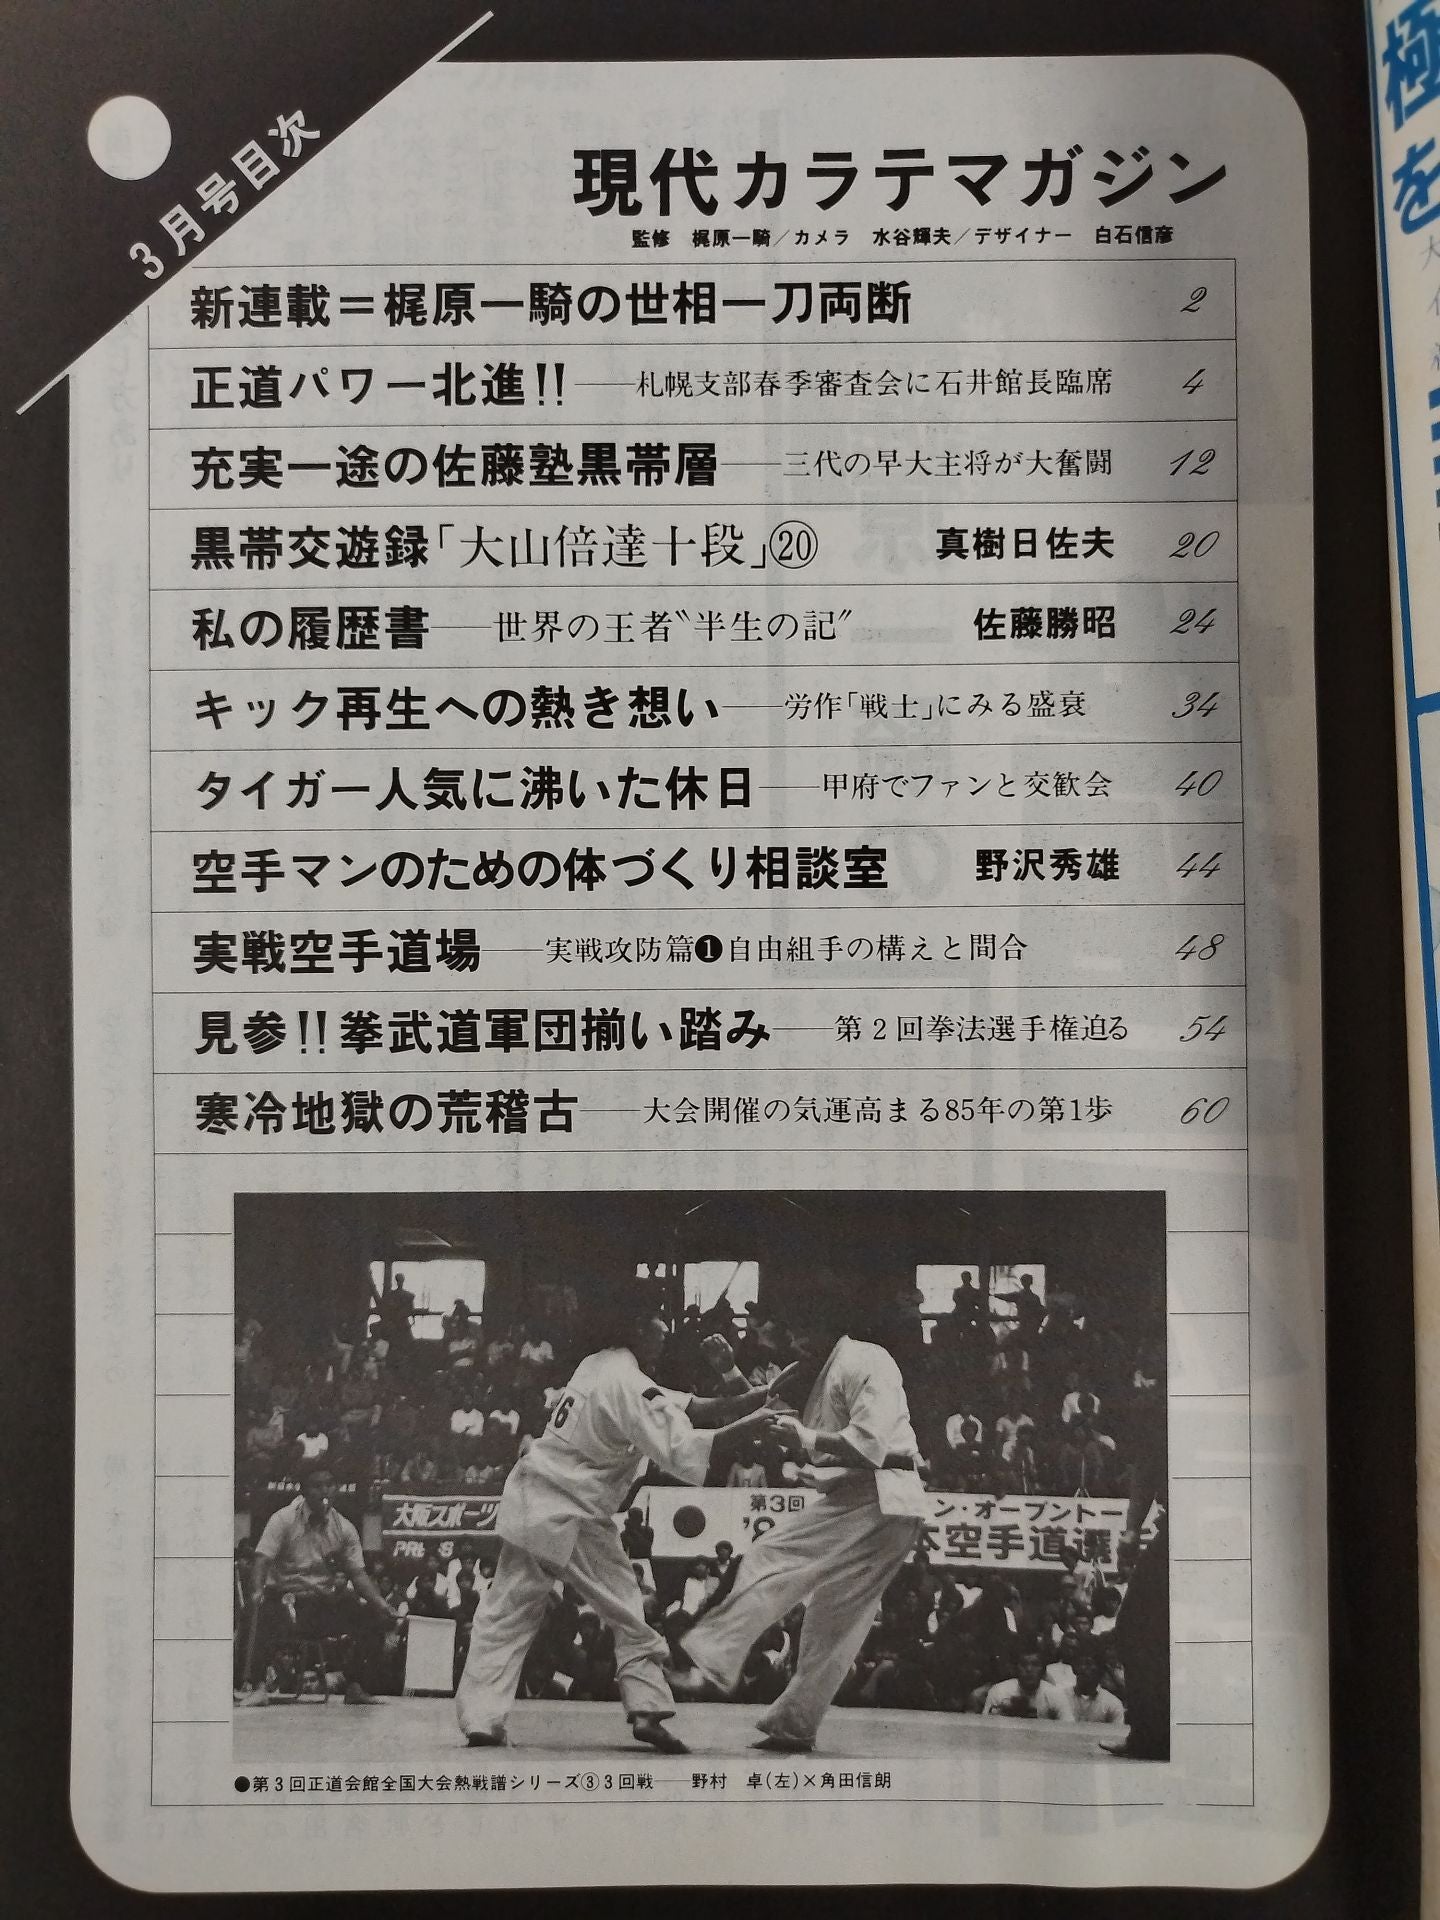 3月号目次
現代カラテマガジン
監修 梶原一騎/カメラ 水谷輝夫/デザイナー 白石信彦
新連載＝梶原一騎の世相一刀両断 2
正道パワー北進!!――札幌支部春季審査会に石井館長臨席 4
充実一途の佐藤塾黒帯層――三代の早大主将が大奮闘 12
黒帯交遊録「大山倍達十段」⑳ 真樹日佐夫 20
私の履歴書――世界の王者〝半生の記〟 佐藤勝昭 24
キック再生への熱き想い――労作「戦士」にみる盛衰 34
タイガー人気に沸いた休日――甲府でファンと交歓会 40
空手マンのための体づくり相談室 野沢秀雄 44
実戦空手道場――実戦攻防篇❶自由組手の構えと間合 48
見参!!拳武道軍団揃い踏み――第2回拳法選手権迫る 54
寒冷地獄の荒稽古――大会開催の気運高まる85年の第1歩 60
6
大阪スポーツ
第3回
ン・オープントー
本空手道選手
●第3回正道会館全国大会熱戦譜シリーズ③3回戦――野村 卓(左)×角田信朗
極
を